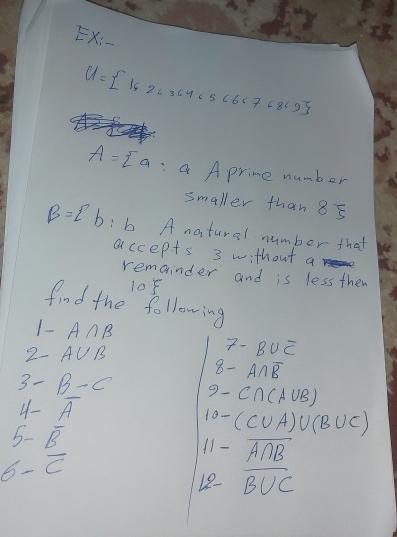 EX:-
U={1،2،3،4،5،6،7،8،9}
A={a: a A prime number
smaller than 8}
B={b: b A natural number that
accepts 3 without a
remainder and is less then
10}
find the following
1- A∩B
2- A∪B
3- B-C
4- A̅
5- B̅
6- C̅
7- B∪C̅
8- A∩B̅
9- C∩(A∪B)
10- (C∪A)∪(B∪C)
11- A̅∩̅B̅
12- B̅∪̅C̅